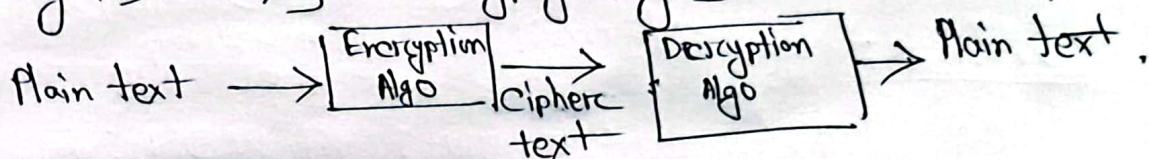 Plain text → Encryption Algo → Cipherc text → Descryption Algo → Plain text.